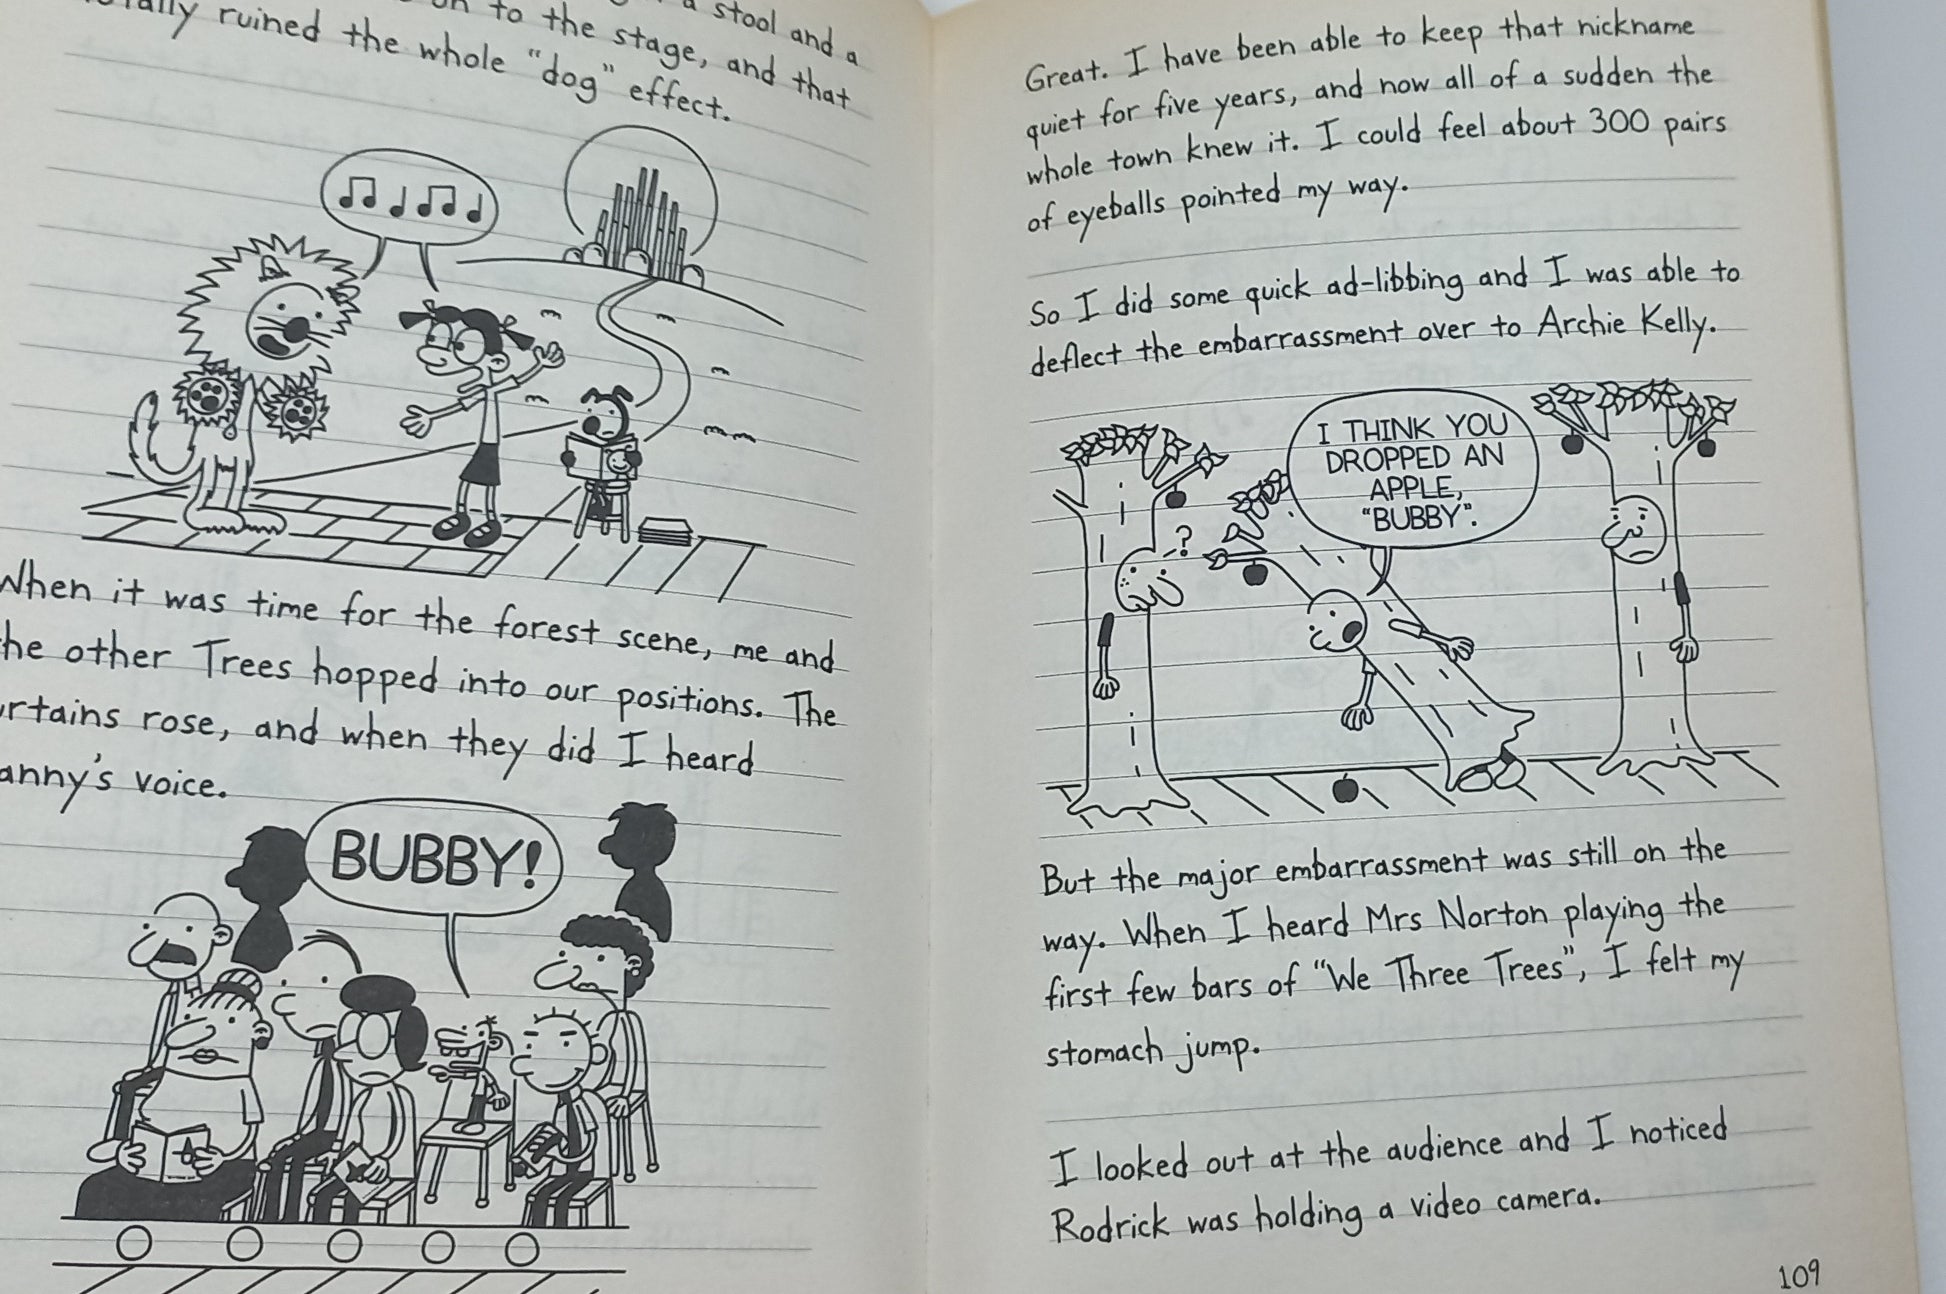 a stool and a
to the stage, and that
ruined the whole "dog" effect.
When it was time for the forest scene, me and
the other Trees hopped into our positions. The
rtains rose, and when they did I heard
anny's voice.
BUBBY!
Great. I have been able to keep that nickname
quiet for five years, and now all of a sudden the
whole town knew it. I could feel about 300 pairs
of eyeballs pointed my way.
So I did some quick ad-libbing and I was able to
deflect the embarrassment over to Archie Kelly.
I THINK YOU
DROPPED AN
APPLE,
"BUBBY".
?
But the major embarrassment was still on the
way. When I heard Mrs Norton playing the
first few bars of "We Three Trees", I felt my
stomach jump.
I looked out at the audience and I noticed
Rodrick was holding a video camera.
109